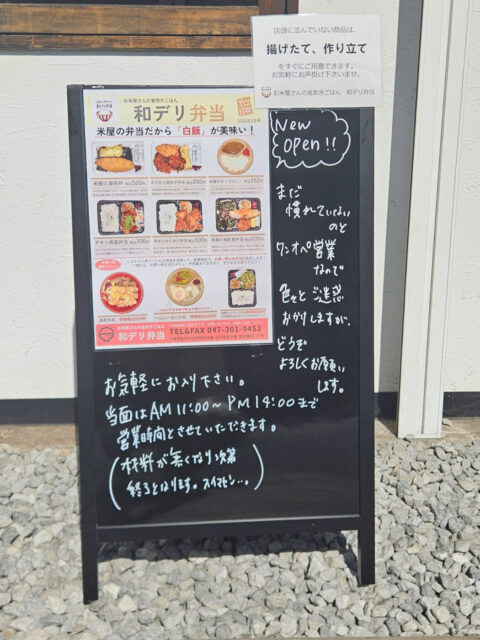 店頭に並んでいない商品は、
揚げたて、作り立て
をすぐにご用意できます。
お気軽にお声掛け下さいませ。
お米屋さんの釜炊きごはん 和デリ弁当
お米屋さんの釜炊きごはん
和デリ弁当
米屋の弁当だから「白飯」が美味い！
米屋の海苔弁 税込500円
税込650円
税込550円
チキン南蛮弁当 税込700円
税込600円
税込600円
和デリ弁当
TEL&FAX 047-301-0452
New
Open!!
まだ
慣れていない
のと
ワンオペ営業
なので
色々とご迷惑
おかけしますが、
どうぞ
よろしくお願い
します。
お気軽にお入り下さい。
当面はAM 11:00〜PM 14:00まで
営業時間とさせていただきます。
(材料が無くなり次第
終了となります。スイマセン…。)